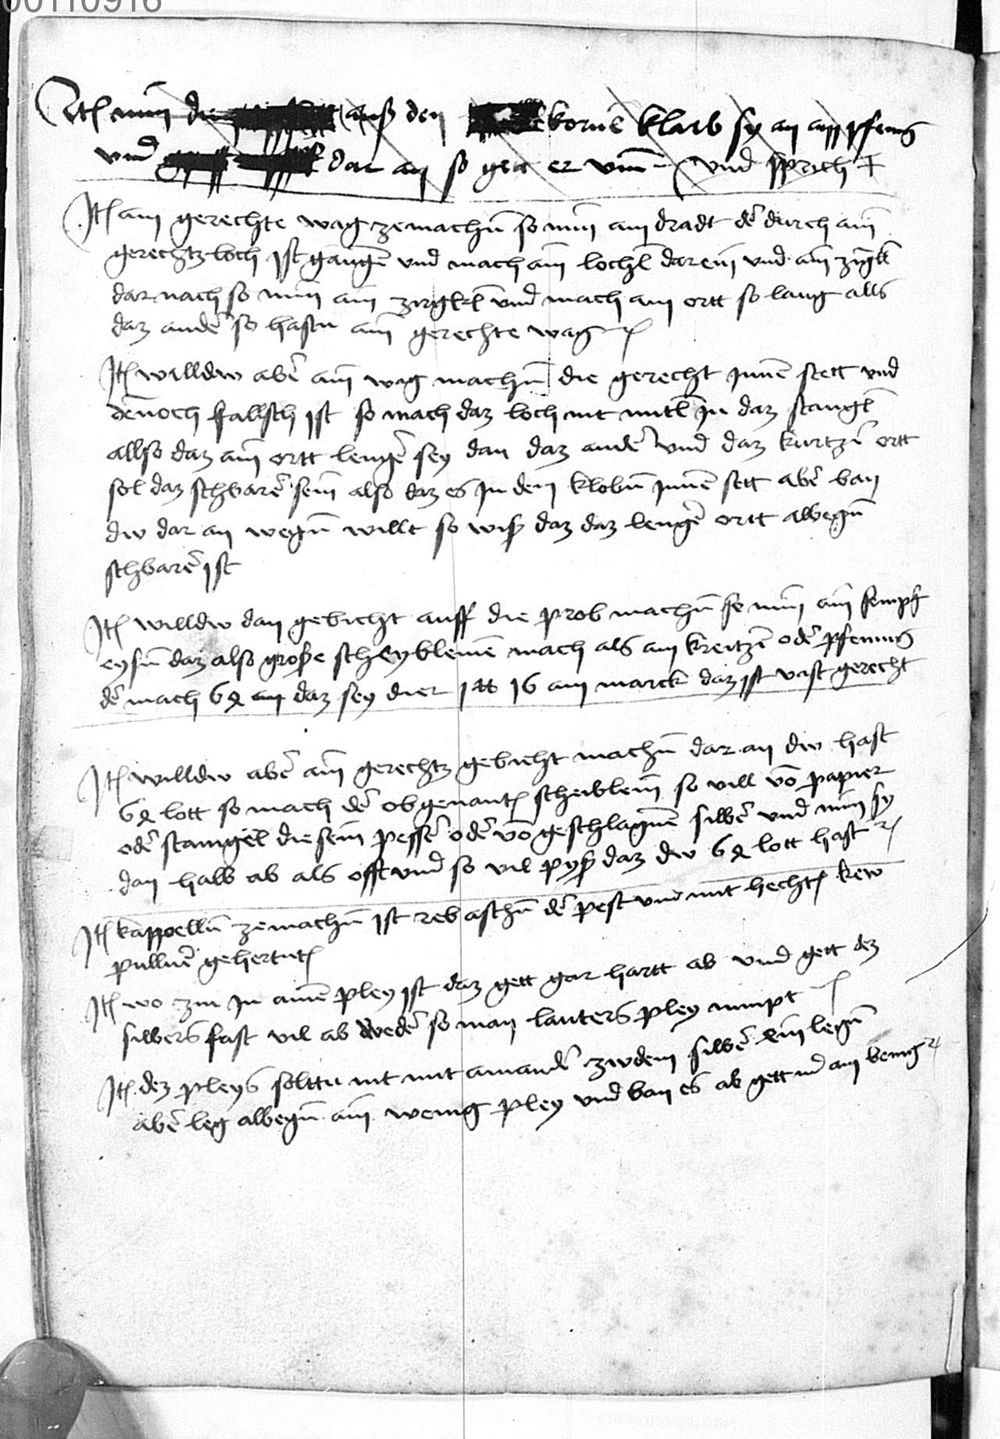 00110916
Jt nim die auß den korne klaub sy an am pfenig
vnd dar an so gett er vm vnd sprich
Jt ain gerechte wag ze machn so nim ain dradt der durch ain
gerechtz loch ist gangen vnd mach ain lochl darein vnd ain
dar nach so nim ain zirgkel vnd mach ain ortt so lang alls
daz ander so hastu ain gerechte wag
Jt willdw aber ain wag machn die gerecht Innen stett vnd
dennoch fallsch ist so mach daz loch nit mitl in daz stangl
allso daz ain ortt lenger sey dan daz ander vnd daz kurtzer ortt
sol daz schbarer sein also daz es Jn dem klobn Jnnen stett aber ban
dw dar an wegn willt so wiß daz daz lenger ortt albegn
schbarer ist
Jt willdw dan gebicht auff die prob machn so nim ain
eysen daz also große scheyblein mach als ain kreitzer oder pfennig
der mach 64 daz sey dier 16 ain marck daz ist vast gerecht
Jt willdw aber ain gerechtz gebicht machn dar an dw hast
64 lott so mach der obgenanten scheiblein so vill von papier
oder stanigel die sein pesser oder von geschlagnen silber vnd nim sy
dan halb ab als offt vnd so vil pyß daz dw 64 lott hast
Jt kappelln ze machn ist reb aschn der pest vnd mit hechten kew
pulluer gehertnt
Jt wo zin Jn ainem pley ist daz gett gar hartt ab vnd gett dez
silbers fast vil ab weder so man lauters pley nimpt
Jt dez pleys solttu nit mit ainander zw dem silber ein legn
aber leg albegn ain wenig pley vnd ban es ab gett ain benig